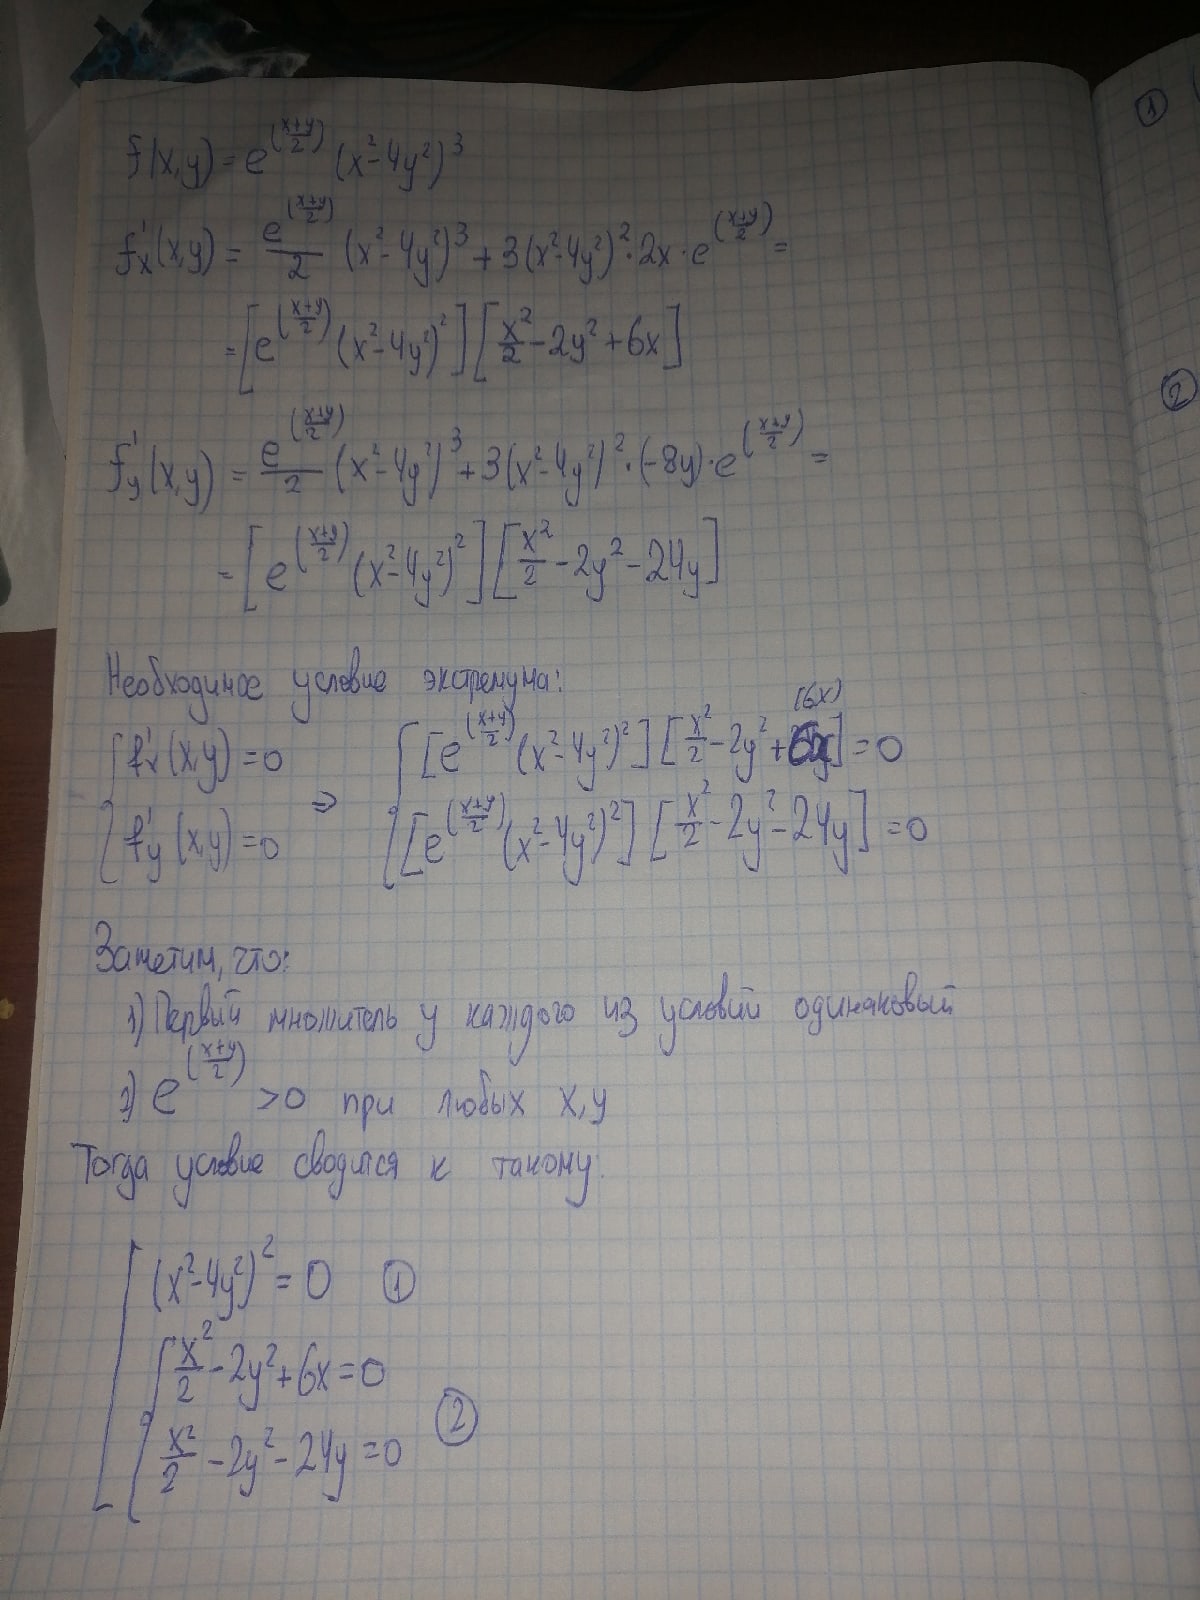 f(x,y) = e^((x+y)/2) (x²-4y²)³
f'x(x,y) = e^((x+y)/2)/2 (x²-4y²)³ + 3(x²-4y²)²·2x·e^((x+y)/2) =
= [e^((x+y)/2) (x²-4y²)²] [x²/2 - 2y² + 6x]
f'y(x,y) = e^((x+y)/2)/2 (x²-4y²)³ + 3(x²-4y²)²·(-8y)·e^((x+y)/2) =
= [e^((x+y)/2) (x²-4y²)²] [x²/2 - 2y² - 24y]
Необходимое условие экстремума:
(6x)
{ f'x(x,y) = 0 ⇒ { [e^((x+y)/2) (x²-4y²)²] [x²/2 - 2y² + 6x] = 0
{ f'y(x,y) = 0 { [e^((x+y)/2) (x²-4y²)²] [x²/2 - 2y² - 24y] = 0
Заметим, что:
1) Первый множитель у каждого из условий одинаковый
2) e^((x+y)/2) > 0 при любых x, y
Тогда условие сводится к такому:
[ (x²-4y²)² = 0 ①
{ x²/2 - 2y² + 6x = 0
{ x²/2 - 2y² - 24y = 0 ②
①
②